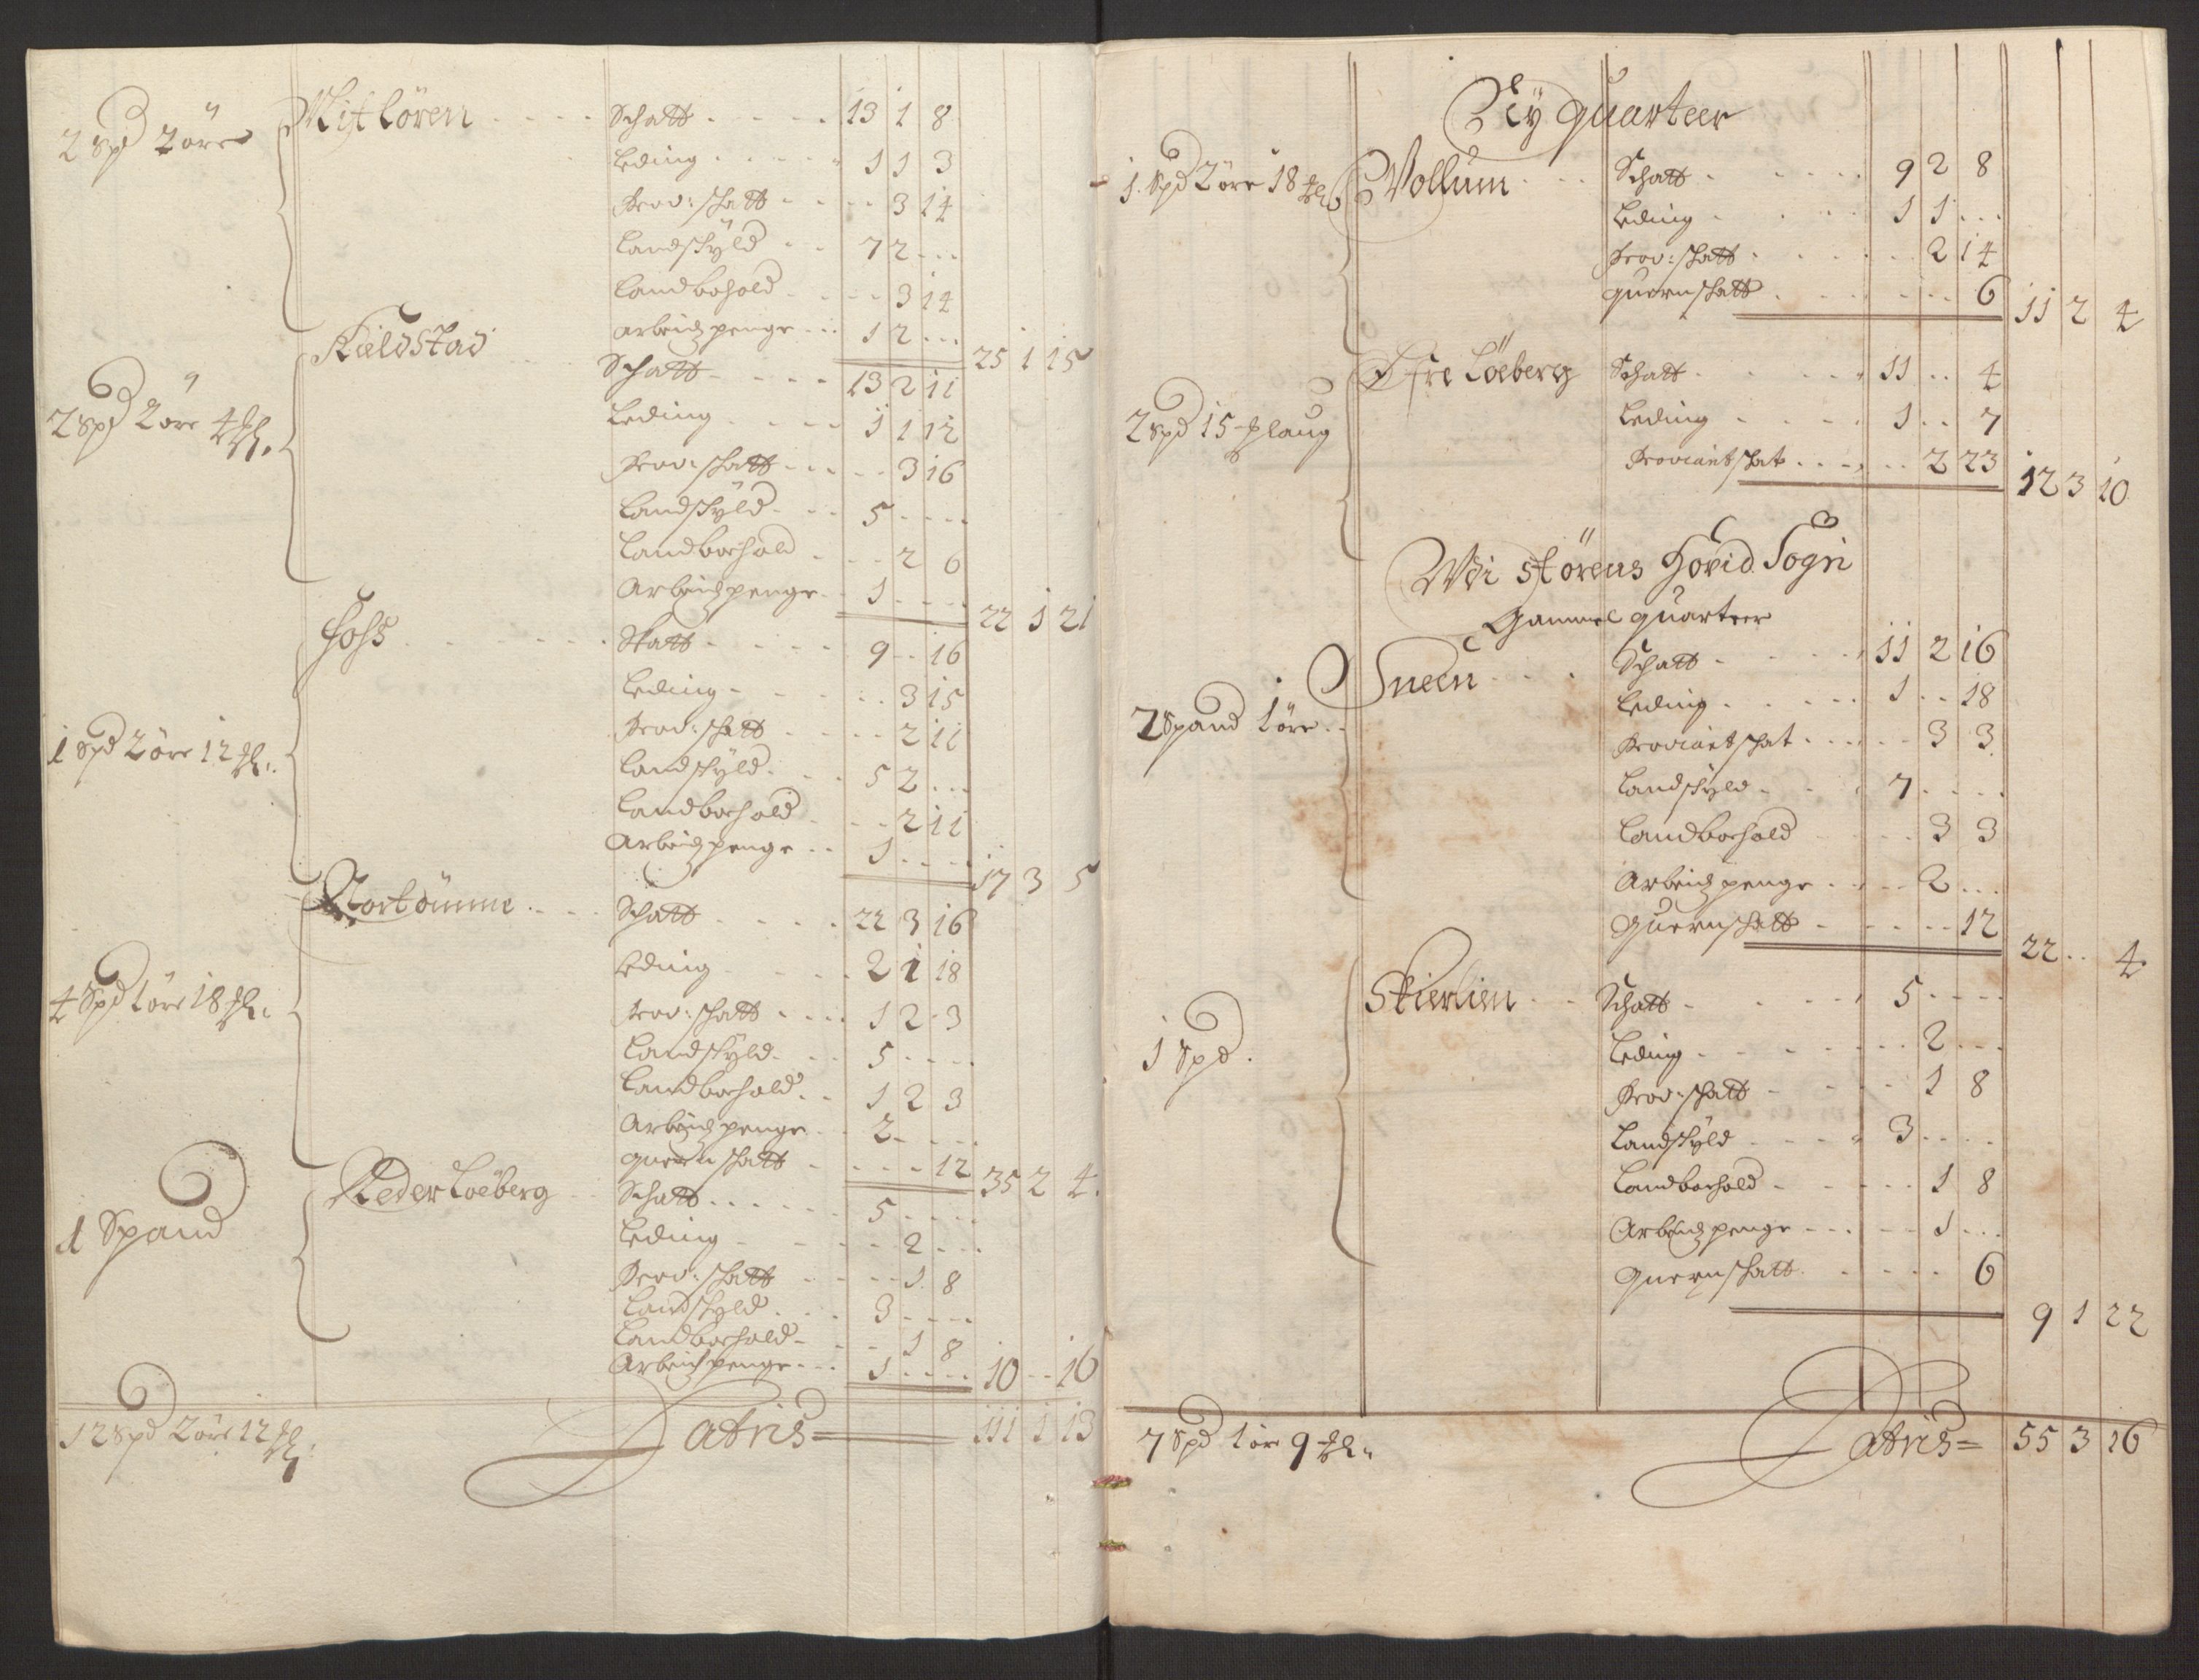 2 Spd 2 öre Mitlören Schatt 13 1 8
Leding 1 1 3
Prov: schatt 3 14
Landschyld 7 2
Landbohold 3 14
arbeidzpenge 1 2
25 1 15
2 Spd 2 öre 4 Kieldstad Schatt 13 2 11
Leding 1 1 12
Prov: schatt 3 16
Landschyld 5
Landboehold 2 6
Arbeidzpenge 1
22 1 21
1 Spd 2 öre 12 Foss Skatt 9 16
Leding 3 15
Prov: schatt 2 11
Landschyld 5 2
Landboehold 2 11
Arbeidzpenge 1
17 3 5
4 Spd 1 öre 18 Nortömme Schatt 22 3 16
Leding 2 1 18
Prov: schatt 1 2 3
Landschyld 5
Landboehold 1 2 3
Arbeidzpenge 2
quernschatt 12
35 2 4
1 Spand Neder Löeberg Schatt 5
Leding 2
Prov: schatt 1 8
Landschyld 3
Landboehold 1 8
Arbeidzpenge 1
10 16
12 Spd 2 öre 12 Latris 111 1 13
Ny quarteer
1 Spd 2 öre 18 Vollum Schatt 9 2 8
Leding 1 1
Prov: schatt 2 14
quernschatt 6
11 2 4
2 Spd 15 laug Öfre Löeberg Schatt 11 4
Leding 1 7
Proviantschat 2 23
12 3 10
Wdi Störens Hovid Sogn
Gammel quarteer
2 Spand 1 öre Sneen Schatt 11 2 16
Leding 1 18
Proviantschat 3 3
Landschyld 7
Landboehold 3 3
Arbeidzpenge 2
Quernschatt 12
22 4
1 Spd Skierlien Schatt 5
Leding 2
Prov: schatt 1 8
Landschyld 3
Landboehold 1 8
Arbeidzpenge 1
Quernschatt 6
9 1 22
7 Spd 1 öre 9 Latris 55 3 16